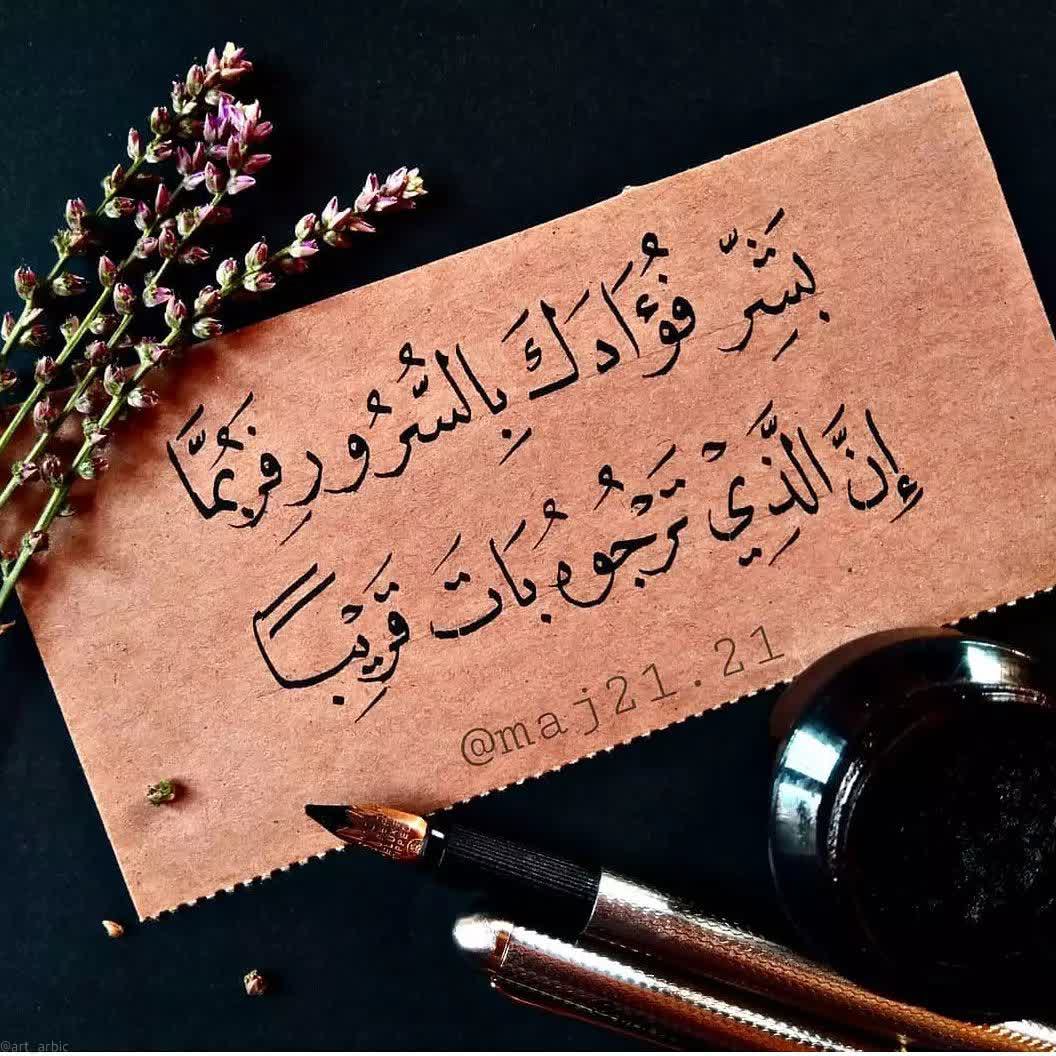 بَشِّرْ فُؤَادَكَ بِالسُّرُورِ فَرُبَمَّا
إِنَّ الَّذِيْ تَرْجُوهُ بَاتَ قَرِيْبًا
@maj21.21
@art_arbic